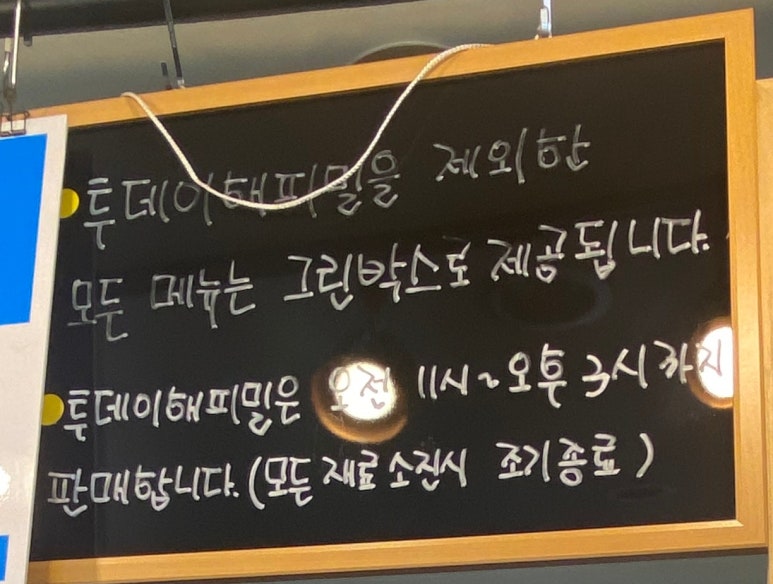 투데이해피밀을 제외한
모든 메뉴는 그린박스로 제공됩니다.
투데이해피밀은 오전 11시~오후 3시까지
판매합니다. (모든 재료 소진시 조기종료)